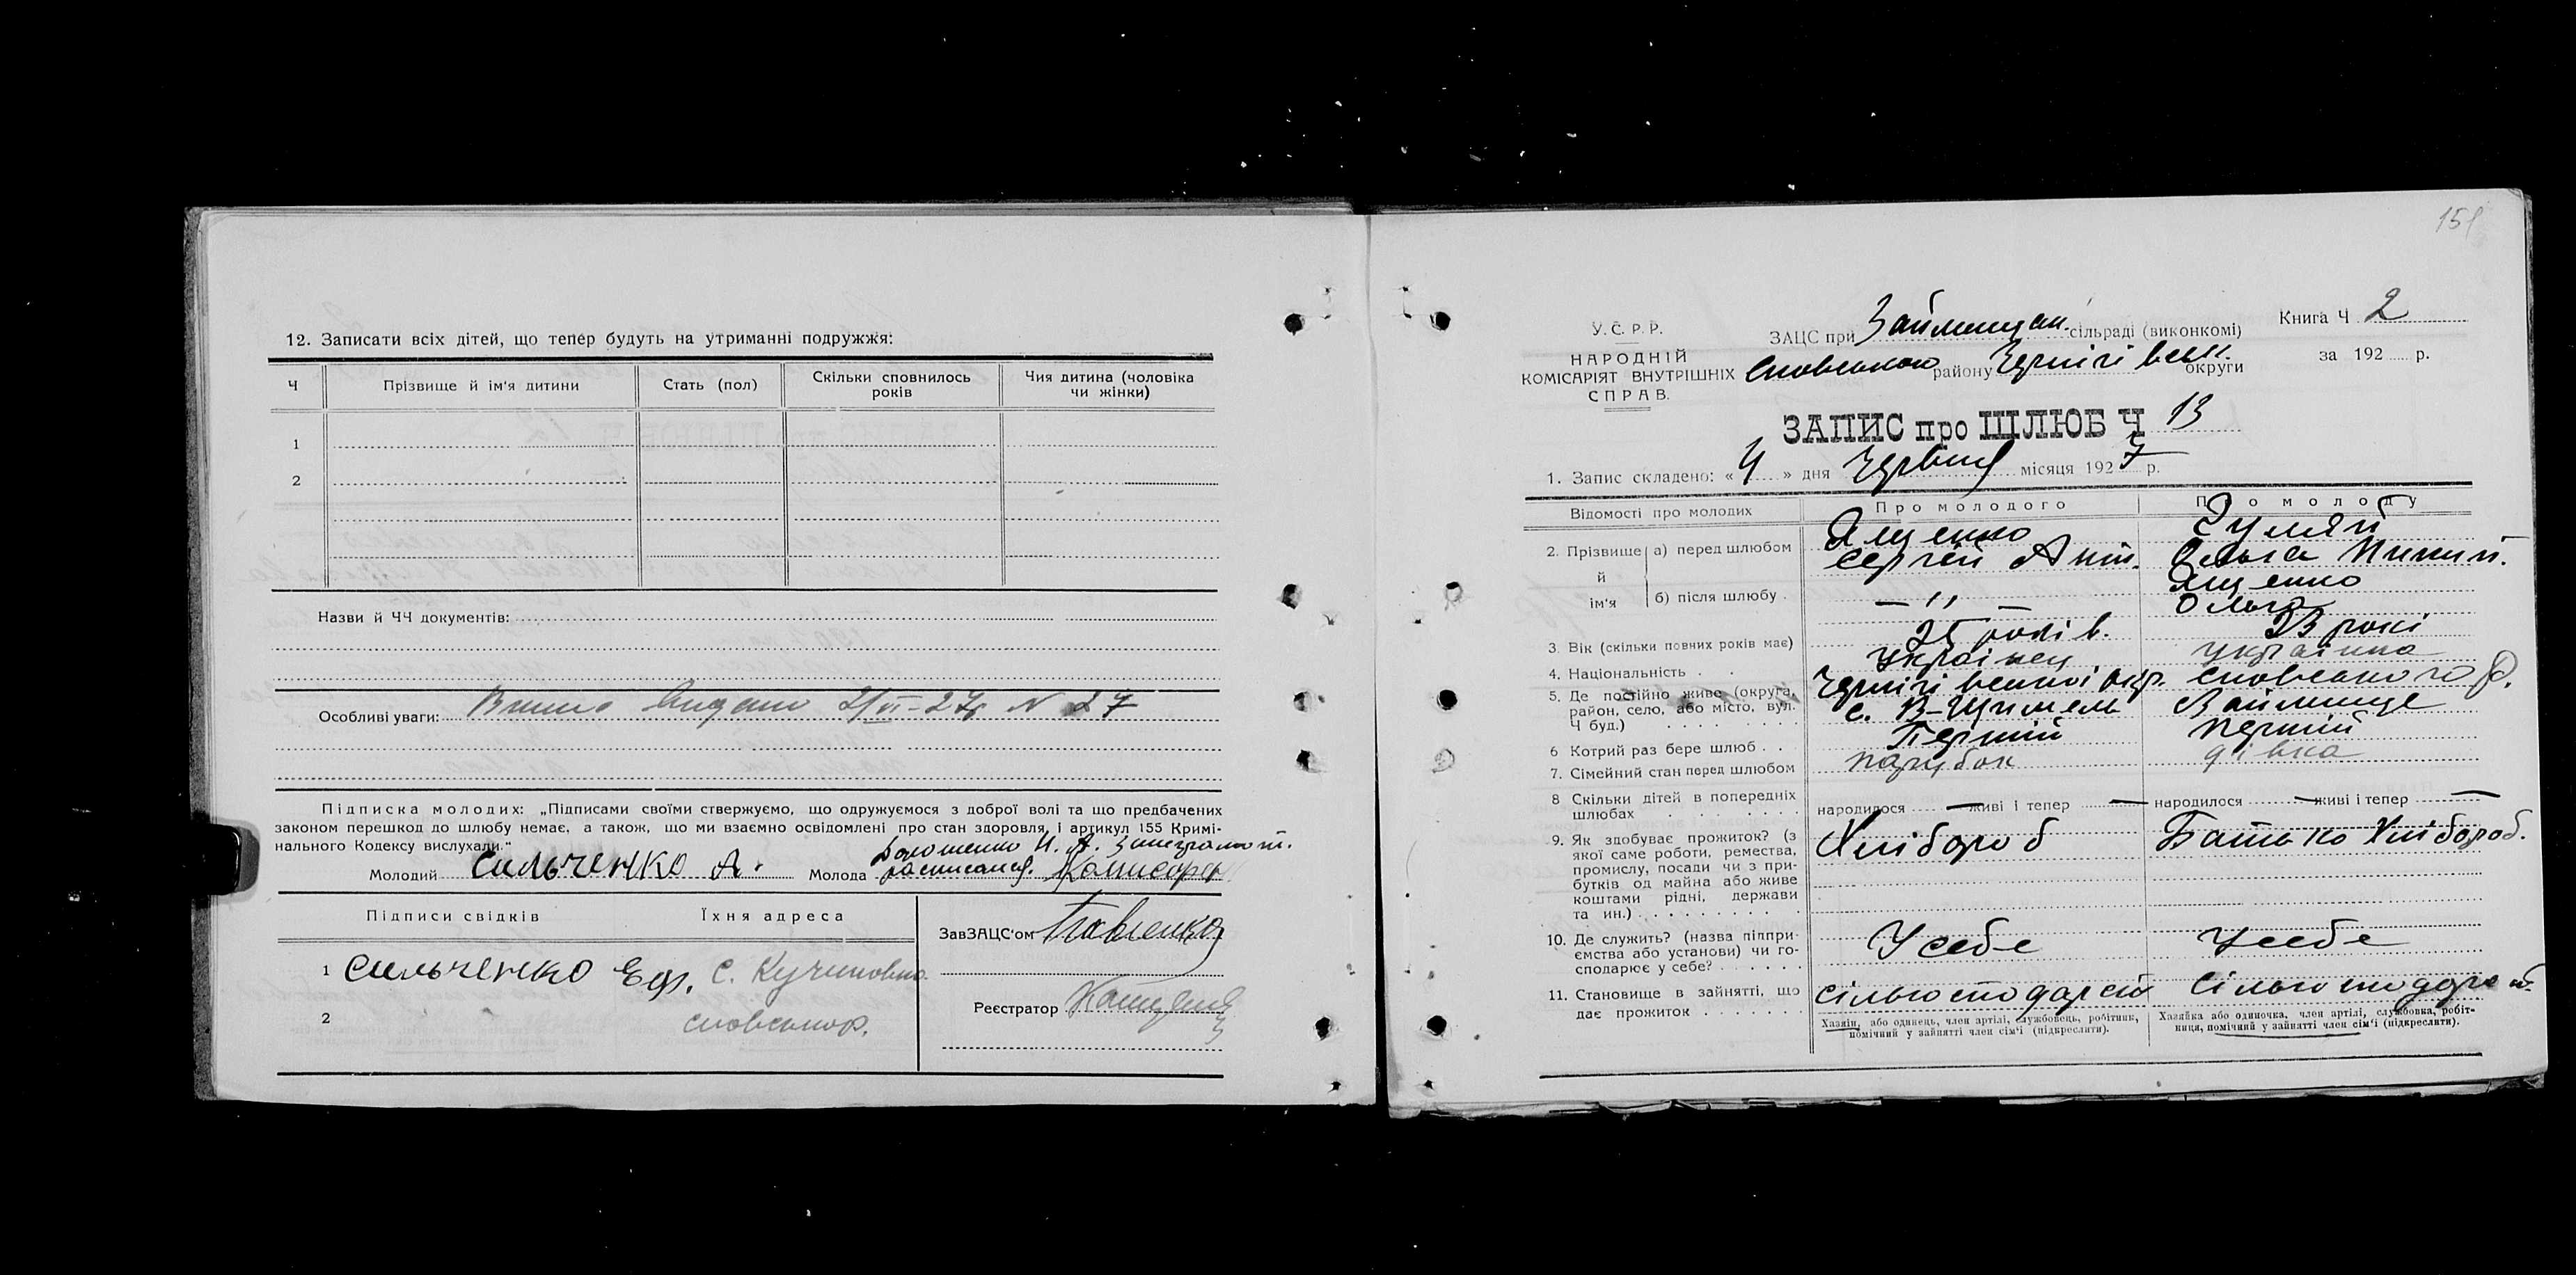 12. Записати всіх дітей, що тепер будуть на утриманні подружжя:
Ч Прізвище й ім'я дитини Стать (пол) Скільки сповнилось років Чия дитина (чоловіка чи жінки)
1
2
Назви й ЧЧ документів:
Особливі уваги: 27
Підписка молодих: „Підписами своїми стверджуємо, що одружуємося з доброї волі та що предбачених
законом перешкод до шлюбу немає, а також, що ми взаємно освідомлені про стан здоровля, і артикул 155 Кримі-
нального Кодексу вислухали."
Молодий Сильченко А. Молода
Підписи свідків Їхня адреса
ЗавЗАЦС'ом
1 Сильченко Еф. с. Кучиновка
Сновськ р.
Реєстратор
2
151
У.С.Р.Р.
НАРОДНІЙ
КОМІСАРІЯТ ВНУТРІШНІХ
СПРАВ.
ЗАЦС при Займищан. сільраді (виконкомі)
Сновського району Чернігівськ. округи
Книга Ч 2
за 192 р.
ЗАПИС про ШЛЮБ Ч 13
1. Запис складено: « 4 » дня Червня місяця 1927 р.
Відомості про молодих Про молодого Про молоду
2. Прізвище й ім'я а) перед шлюбом Ященко Сергій Ант. Ольга
б) після шлюбу — " — Ященко Ольга
3. Вік (скільки повних років має) 25 років. 23 рокі
4. Національність Українец Українка
5. Де постійно живе (округа, район, село, або місто, вул. Ч буд.) Чернігівської окр. Сновського р. с. В-Щимель Займище
6 Котрий раз бере шлюб Перший перший
7. Сімейний стан перед шлюбом парубок дівка
8 Скільки дітей в попередніх шлюбах народилося — живі і тепер — народилося — живі і тепер —
9. Як здобуває прожиток? (з якої саме роботи, ремества, промислу, посади чи з прибутків од майна або живе коштами рідні, держави та ин.) Хлібороб Батько Хлібороб.
10. Де служить? (назва підприємства або установи) чи господарює у себе? У себе у себе
11. Становище в зайнятті, що дає прожиток
Хазяїн, або одинець, член артілі, службовець, робітник, помічний у зайнятті член сім'ї (підкреслити).
Хазяйка або одиночка, член артілі, службовка, робітниця, помічний у зайнятті член сім'ї (підкреслити).